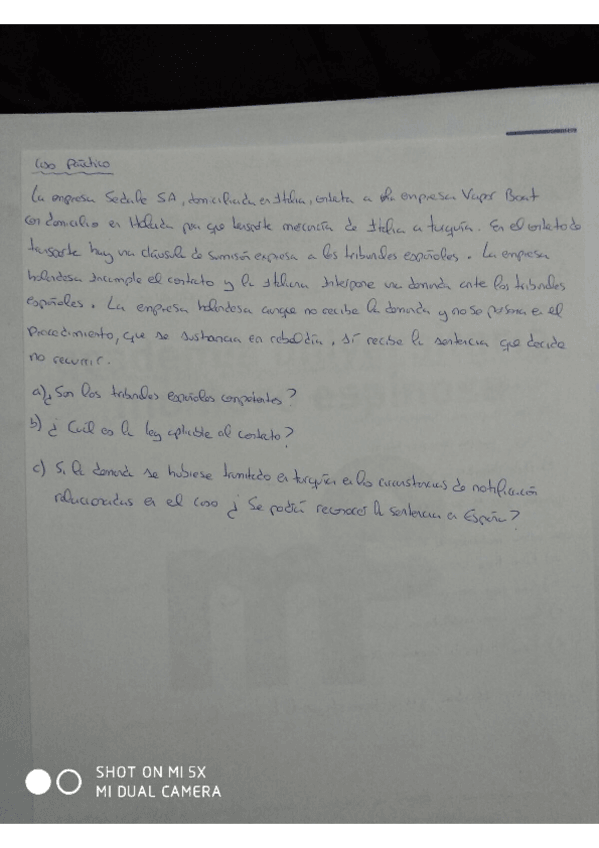 Caso Práctico
La empresa Sedale SA, domiciliada en Italia, contrata a una empresa Vapor Boat
con domicilio en Holanda para que transporte mercancía de Italia a turquía. En el contrato de
transporte hay una cláusula de sumisión expresa a los tribunales españoles. La empresa
holandesa incumple el contrato y la italiana interpone una demanda ante los tribunales
españoles. La empresa holandesa aunque no recibe la demanda y no se persona en el
procedimiento, que se sustancia en rebeldía, sí recibe la sentencia que decide
no recurrir.
a) ¿Son los tribunales españoles competentes?
b) ¿Cuál es la ley aplicable al contrato?
c) Si la demanda se hubiese tramitado en turquía en las circunstancias de notificación
relacionadas en el caso ¿Se podría reconocer la sentencia en España?
SHOT ON MI 5X
MI DUAL CAMERA